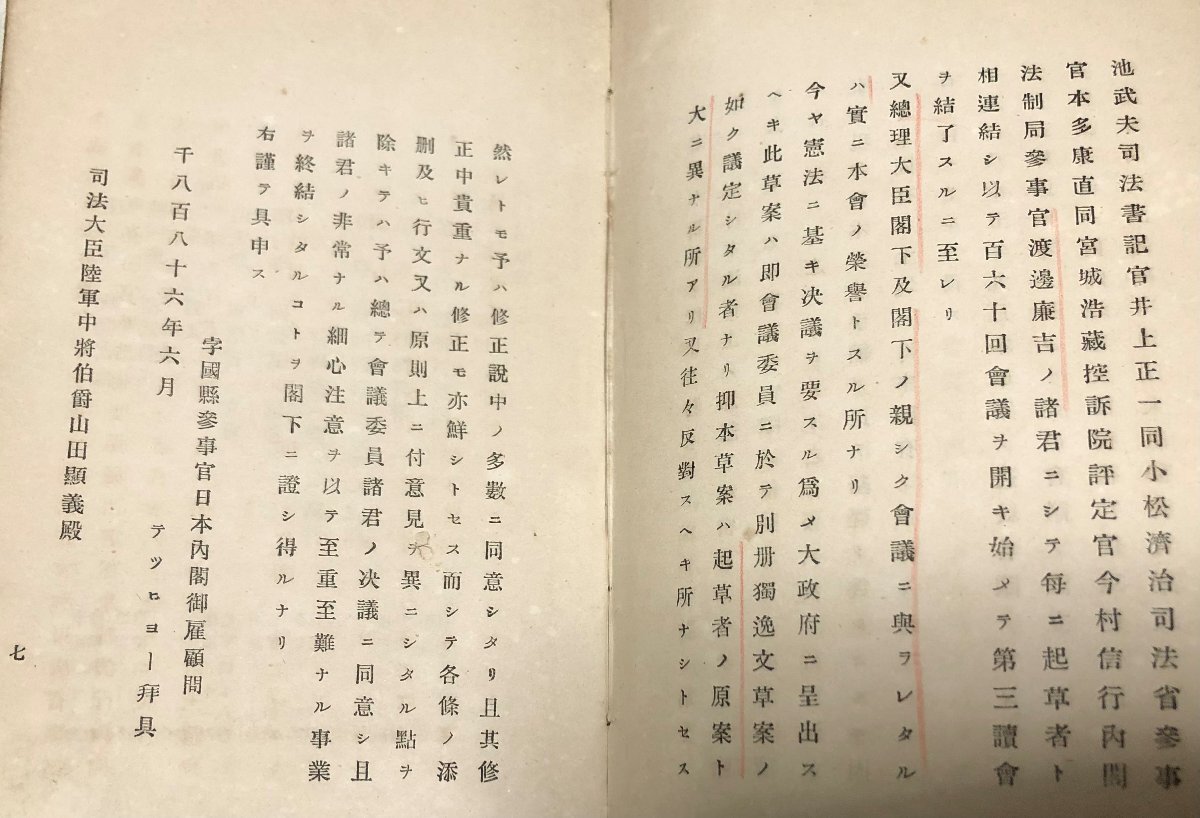 池武夫司法書記官井上正一同小松濟治司法省參事
官本多康直同宮城浩藏控訴院評定官今村信行內閣
法制局參事官渡邊廉吉ノ諸君ニシテ每ニ起草者ト
相連結シ以テ百六十回會議ヲ開キ始メテ第三讀會
ヲ結了スルニ至レリ
又總理大臣閣下及閣下ノ親シク會議ニ與ヲレタル
ハ實ニ本會ノ榮譽トスル所ナリ
今ヤ憲法ニ基キ決議ヲ要スル爲メ大政府ニ呈出ス
ヘキ此草案ハ即會議委員ニ於テ別册獨逸文草案ノ
如ク議定シタル者ナリ抑本草案ハ起草者ノ原案ト
大ニ異ナル所アリ又往々反對スヘキ所ナシトセス
然レトモ予ハ修正說中ノ多數ニ同意シタリ且其修
正中貴重ナル修正モ亦鮮シトセス而シテ各條ノ添
删及ヒ行文又ハ原則上ニ付意見ヲ異ニシタル點ヲ
除キテハ予ハ總テ會議委員諸君ノ決議ニ同意シ且
諸君ノ非常ナル細心注意ヲ以テ至重至難ナル事業
ヲ終結シタルコトヲ閣下ニ證シ得ルナリ
右謹テ具申ス
孛國縣參事官日本內閣御雇顧問
千八百八十六年六月
テッヒョー拜具
司法大臣陸軍中將伯爵山田顯義殿
七